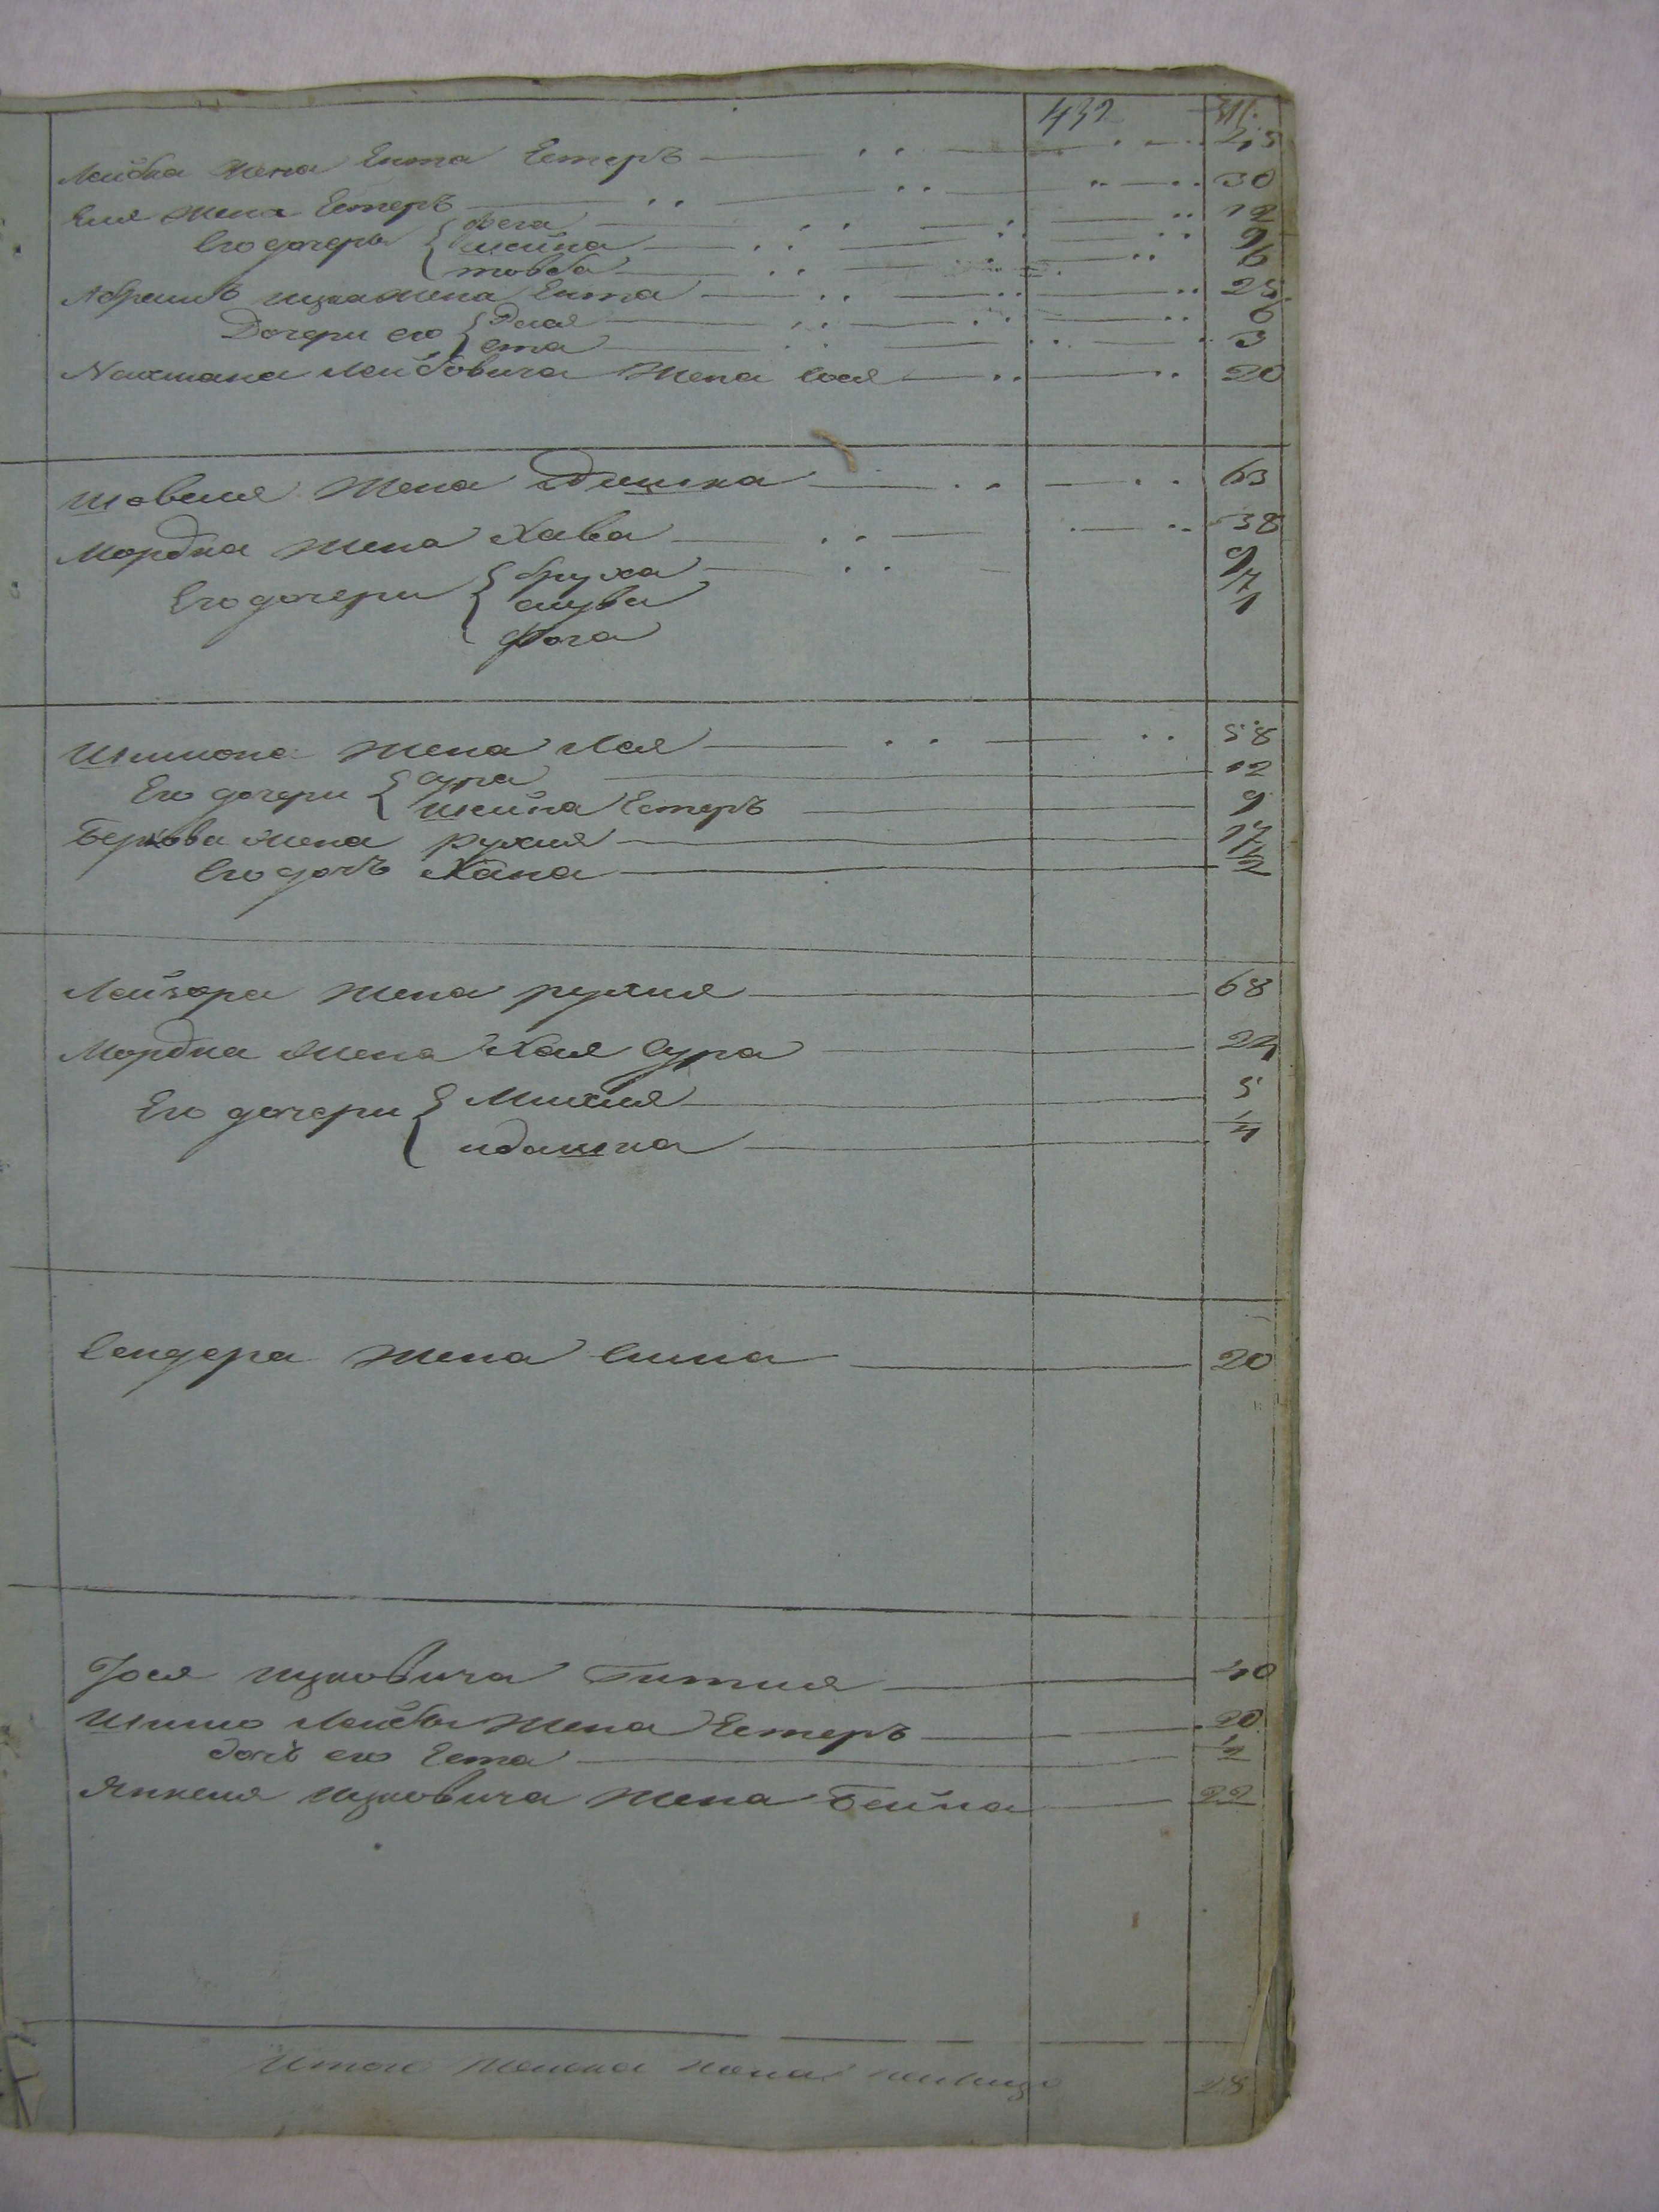 432
Лейбка жена Ента Естеръ 45
Еля жена Естеръ 30
Его дочеры Фега 12
шейна 9
товба 6
Абрамъ ицка жена Ента 25
Дочери его Рела 6
ета 3
Нахмана Лейбовича жена Сося 20
Шовеля жена Идишка 63
Мордка жена Хава 38
Его дочери бруха 9
ашува 7
Фога 1
Шимона жена Лея 58
Его дочери сура 12
Шейна Естеръ 9
Беркова жена рухля 17
Его дочъ Хана 1/2
Лейзора жена рухля 68
Мордка жена Хая Сура 24
Его дочери Михля 5
идашка 1/4
Сендера жена Сима 20
Иося ицковича Гитля 40
Шимо Лейбы жена Естеръ 20
дочъ его Еста 1/2
Янкеля ицковича жена Бейна 22
Итого женска пола на лицо 28